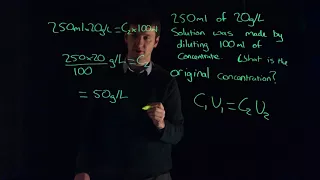 250ml×20g/L = C₂×100ml
250×20 g/L = C₂
100
= 50g/L
250ml of 20g/L
Solution was made by
diluting 100ml of
concentrate. What is the
original concentration?
C₁V₁=C₂V₂